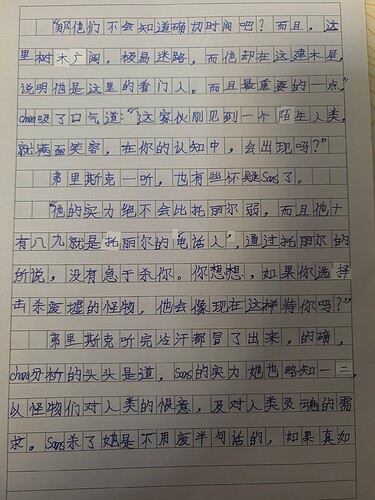 "那他们不会知道确切时间吧？而且，这
里树木广阔，极易迷路，而他却在这建木屋，
说明他是这里的看门人。而且最重要的一点，"
chara吸了口气道："这家伙刚见到一个陌生人类，
就满面笑容，在你的认知中，会出现吗？"
弗里斯克一听，也有些怀疑Sans了。
"他的实力绝不会比托丽尔弱，而且他十
有八九就是托丽尔的'电话人'，通过托丽尔的
所说，没有急于杀你。你想想，如果你选择
击杀废墟的怪物，他会像现在这样待你吗？"
弗里斯克听完冷汗都冒了出来，的确，
chara分析的头头是道，Sans的实力她也略知一二，
以怪物们对人类的恨意，及对人类灵魂的需
求。Sans杀了她是不用废半句话的，如果真如